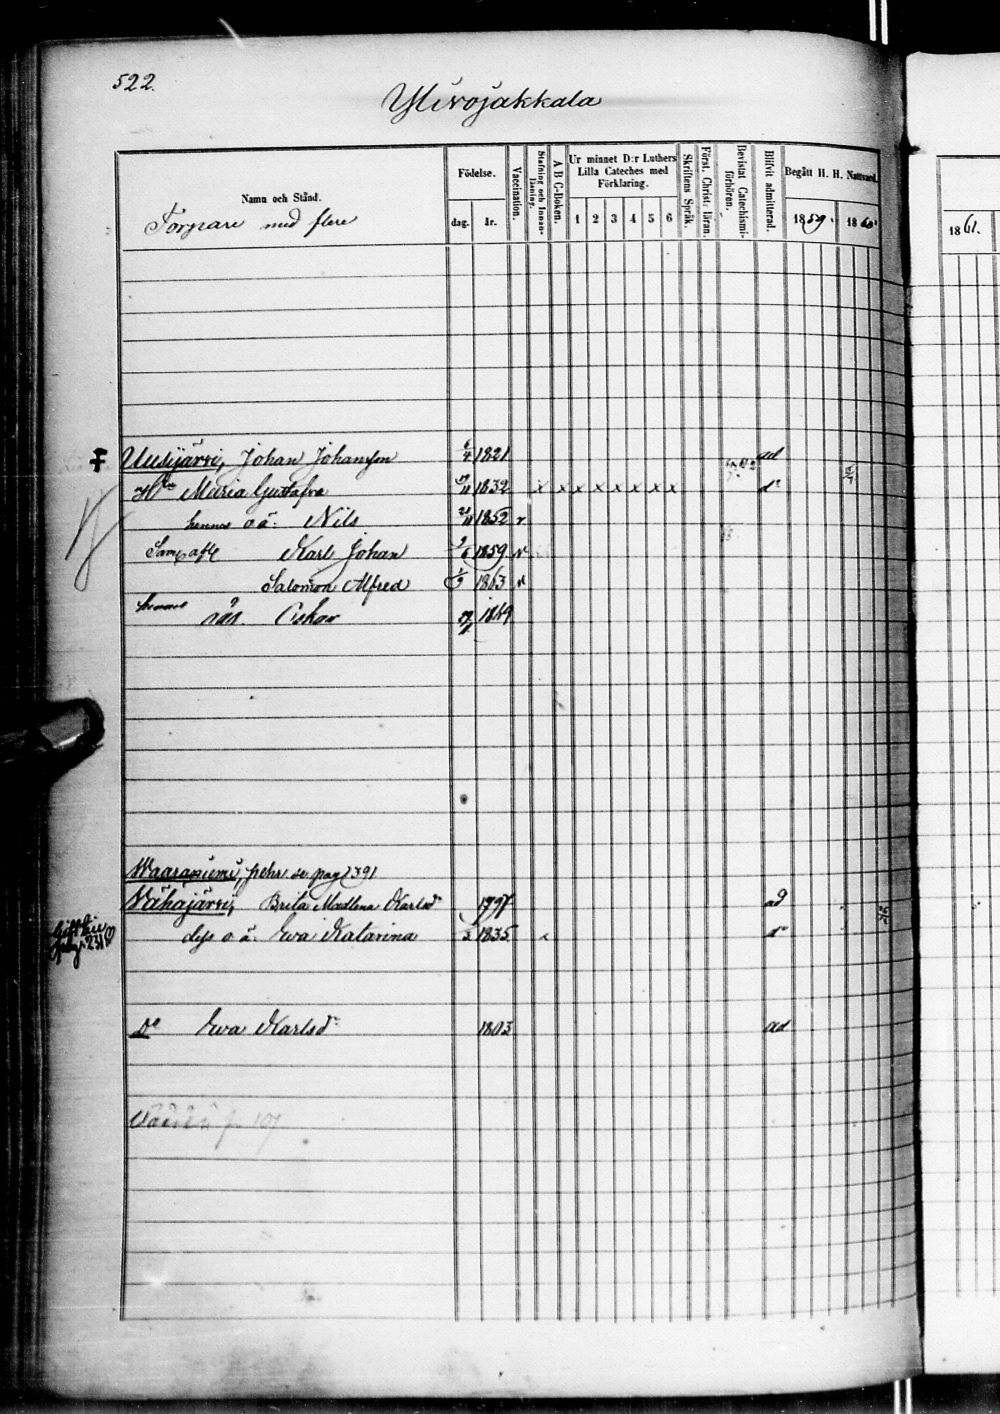 522.
Ylivojakkala
Namn och Stånd.
Torpare med flere
Födelse.
dag. år.
Vaccination.
Stafning och Innan-läsning.
A B C-Boken.
Ur minnet D:r Luthers Lilla Cateches med Förklaring.
1 2 3 4 5 6
Skriftens Språk.
Först. Christ: läran.
Bevistat Catechismi-förhören.
Blifvit admitterad.
Begått H. H. Nattvard.
1859. 1860.
1861.
Uusijärvi, Johan Johansson 6/4 1821 ad
Maria Gustafva 1832 x x x x x x x x
hennes o.ä. Nils 1852 v
Karl Johan 1859 v
Salomon Alfred 1863 v
hennes Oskar 1849
Waaraniemi, Pehr se pag 391
Vähäjärvi, Brita Madlena Karlsdr 1797 ad
dess o.ä. Ewa Katarina 1835
Do Ewa Karlsdr 1803 ad